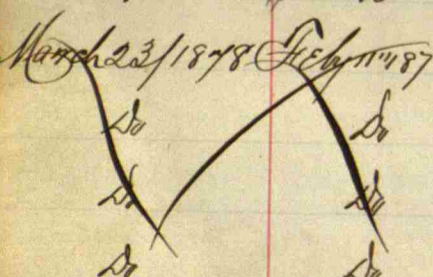 March 23/1878 Feby 11th 187
Do Do
Do Do
Do Do